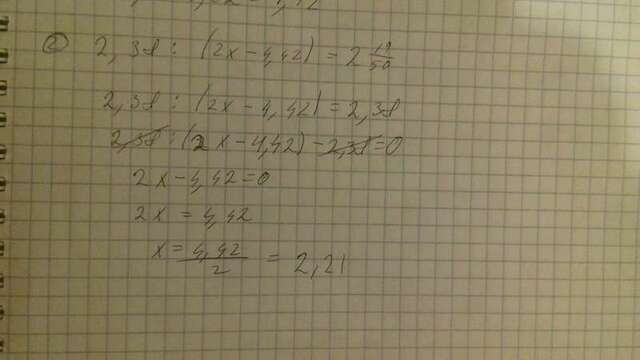 ② 2,38 : (2x - 4,42) = 2 19/50
2,38 : (2x - 4,42) = 2,38
2,38 : (2x - 4,42) - 2,38 = 0
2x - 4,42 = 0
2x = 4,42
x = 4,42/2 = 2,21